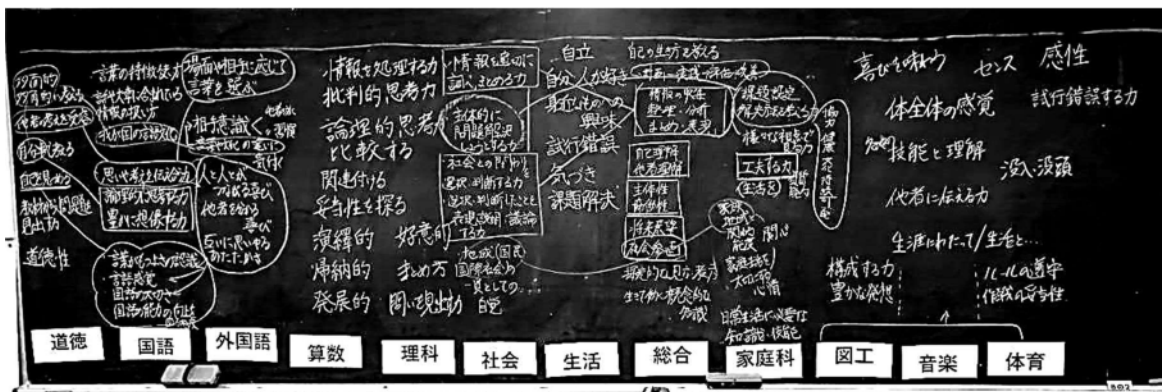 多面的
他者の考えを
自分
自己を見つめる
教材から問題を
見出す力
道徳性
言葉の特徴や使い方
話や文章に含まれている
情報の扱い方
我が国の言語文化
思いや考えを伝え合う力
論理的思考力
豊かに想像する力
言葉がもつよさの認識
言語感覚
国語の大切さ
国語の能力の向上
場面や相手に応じて
言葉を選ぶ
相手意識
気付く
人と人とが
つながる喜び
他者を知る
喜び
互いに思いやる
あたたかさ
情報を処理する力
批判的思考力
論理的思考力
比較する
関連付ける
妥当性を探る
演繹的
帰納的
発展的
好意的
まとめ方
問い見出す力
情報を適切に
調べまとめる力
主体的に
問題解決
しようとする力
社会との関わりを
選択・判断する力
選択・判断したことを
表現・説明・議論
する力
地域(国民)
国際社会の
一員としての
自覚
自立
自分、人が好き
身近なものへの
興味
試行錯誤
気づき
課題解決
自己の生き方を考える
計画→実践→評価→改善
情報の収集
整理・分析
まとめ・表現
自己理解
他者理解
主体性
将来展望
社会参画
探究的な見方・考え方
生きて働く概念的な
知識
課題設定
解決方法を考える力
様々な視点で
見る力
工夫する力
(生活を)
家族
地域
関心
家庭生活を
大切にする
心情
日常生活に必要な
知識・技能
協力
健康
喜びを味わう
センス
感性
試行錯誤する力
体全体の感覚
知的
技能と理解
没入・没頭
他者に伝える力
生涯にわたって/生活と…
構成する力
豊かな発想
ルールの遵守
作戦の妥当性
道徳
国語
外国語
算数
理科
社会
生活
総合
家庭科
図工
音楽
体育